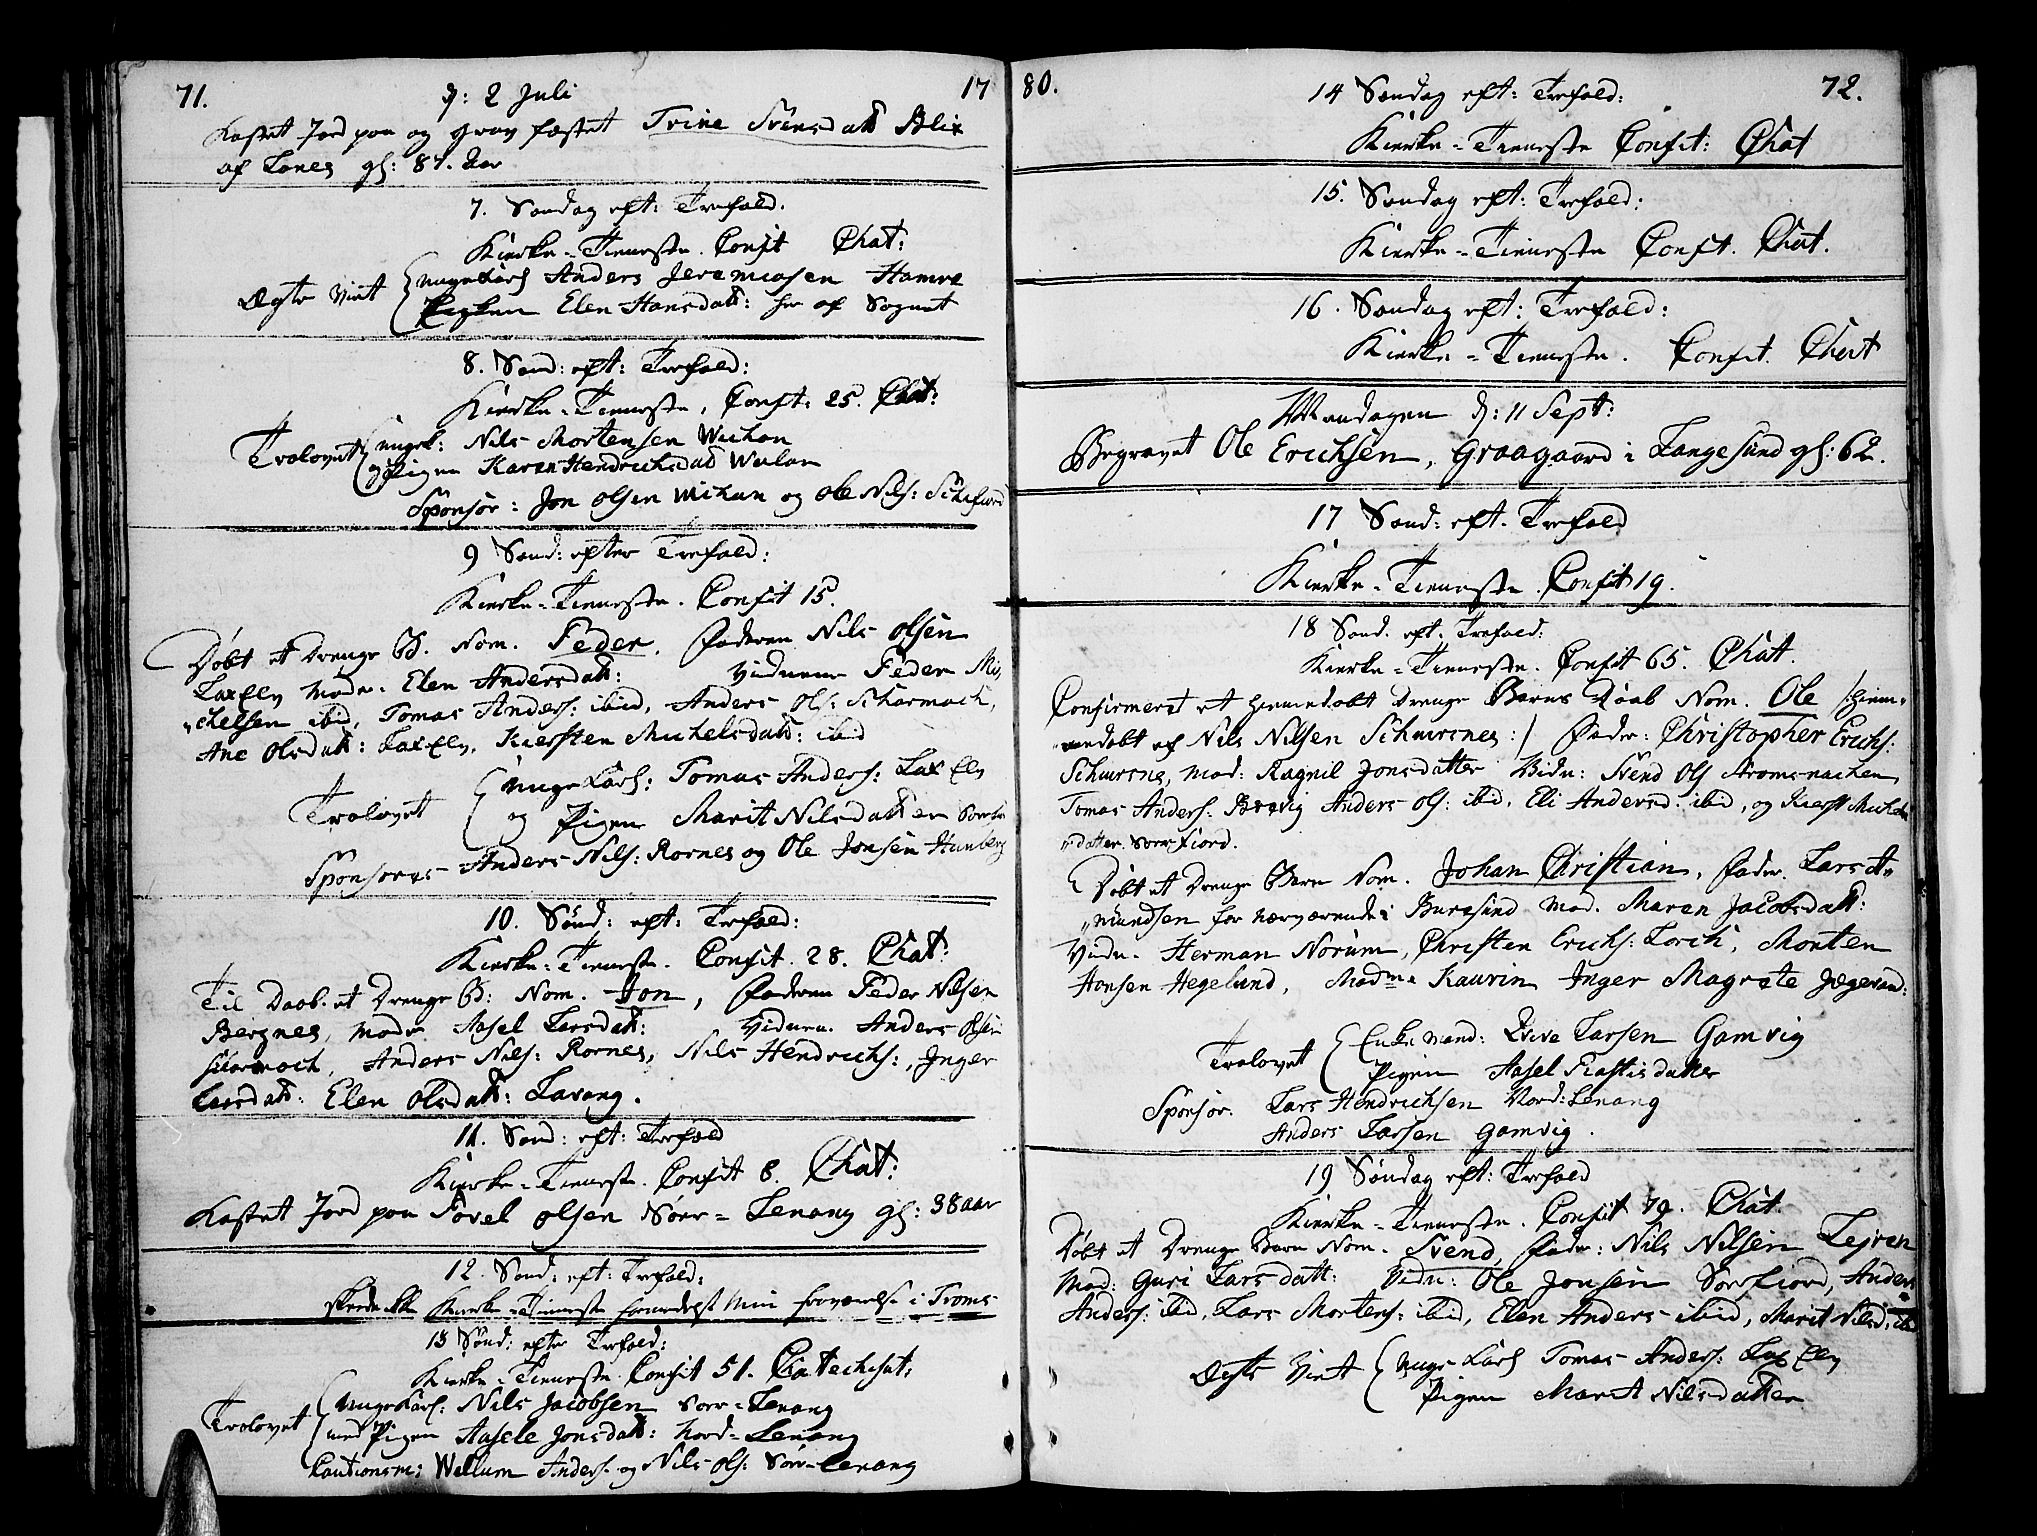 71. d: 2 Juli 17
Kastet Jord paa og Grav fæstet Trine Svensdatt Blix
af Lanes gl: 87. Aar
7. Søndag eft: Trefold.
Kirke-Tienneste. Confit Chat:
Ægte Viet Unge Karl Anders Jeremiasen Hamre
Pigen Elen Hansdatt: her af Sognet
8. Sønd: eft: Trefold:
Kirke-Tienneste, Confit: 25. Chat:
Trolovet ungek: Nils Mortensen
og Pigen Karen Hendrichsdat
Sponsor: Jon Olsen og Ole Nils:
9 Sønd: efter Trefold:
Kirke-Tienneste. Confit 15.
Døbt et Drenge B. Nom. Peder. Faderen Nils Olsen
LaxElv Moder. Elen Andersdatt: Vidnerne Peder Mi,
,,chelsen ibid, Tomas Anders: ibid, Anders Ols: Scharmoch,
Ane Olsdatt: LaxElv, Kiersten Michelsdatt: ibid
Trolovet Unge Karl: Tomas Anders: Lax Elv
og Pigen Marit Nilsdatter
Sponsores Anders Nils: Rornes og Ole Jonsen
10. Sønd: eft: Trefold:
Kirke-Tienneste. Confit. 28. Chat:
Til Daab et Drenge B: Nom. Jon, Faderen Peder Nilsen
Bergnes, Moder Aasel Larsdatt: Vidnern. Anders Olsen
Anders Nils: Rornes, Nils Hendrichs:, Inger
Larsdatt: Elen Olsdatt: Lavang.
11. Sønd: eft: Trefold
Kirke-Tienneste. Confit 8. Chat:
Kastet Jord paa Povel Olsen Sør-Lenang gl: 38 aar
12. Sønd: eft: Trefold:
skeede ikke Kirke-Tienneste formedelst Min fraværelse i Troms-
13 Sønd: efter Trefold:
Kirke-Tienneste Confit 51. Catechisat:
Trolovet Unge Karl: Nils Jacobsen Sør-Lenang
med Pigen Aasele Jonsdatt: Nord-Lenang
Cautionsm: Wellum Anders. og Nils Ols: Sør-Lenang
80. 14 Søndag eft: Trefold: 72.
Kirke-Tienneste Confit: Chat
15. Søndag eft: Trefold:
Kirke-Tienneste Confit. Chat.
16. Søndag eft: Trefold:
Kirke-Tienneste. Confit. Chat
Mandagen d: 11 Sept:
Begravet Ole Erichsen, Graagaard i Langesund gl: 62.
17 Sønd: eft. Trefold
Kirke-Tienneste. Confit 19.
18 Sønd. eft: Trefold:
Kirke-Tienneste. Confit 65. Chat.
Confirmeret et hiemmedøbt Drenge Barns Daab Nom. Ole /:hiem-
medøbt af Nils Nilsen :/ Fader: Christopher Erichs:
Mod: Ragnil Jonsdatter Vidn: Svend Ols
Tomas Anders: Anders Ols: ibid, Eli Andersd. ibid, og Kierst Michels
,,datter. Sørfiord.
Døbt et Drenge Barn Nom. Johan Christian, Fader. Lars A-
,,mundsen for nærværende i Buresund Mod. Maren Jacobsdatt:
Vidn. Herman Norum, Christen Erichs: Lorch, Morten
Hansen Hegelund, Madme Kaurin Inger Magrete Jægevand:
Trolovet Enke mand: Iver Larsen Gamvig
Pigen Aasel datter
Sponsor. Lars Hendrichsen Nord:Lenang
Anders Larsen Gamvig.
19 Søndag eft: Trefold
Kirke-Tienneste. Confit 79. Chat.
Døbt et Drenge Barn Nom. Svend, Fader: Nils Nilsen
Mod: Guri Larsdatt: Vidn: Ole Jonsen Sørfiord, Anders
Anders: ibid, Lars Mortens: ibid, Elen Anders ibid, Marit Nilsd: ibid
Ægte Viet Unge Karl Tomas Anders: Lax Elv
Pigen Marit Nilsdatter